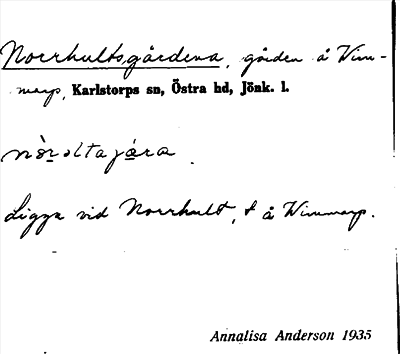 Norrhultsgårdena, gården å Vim-
marp, Karlstorps sn, Östra hd, Jönk. l.
nòroltajára.
Ligga vid Norrhult, t å Vimmarp.
Annalisa Anderson 1935